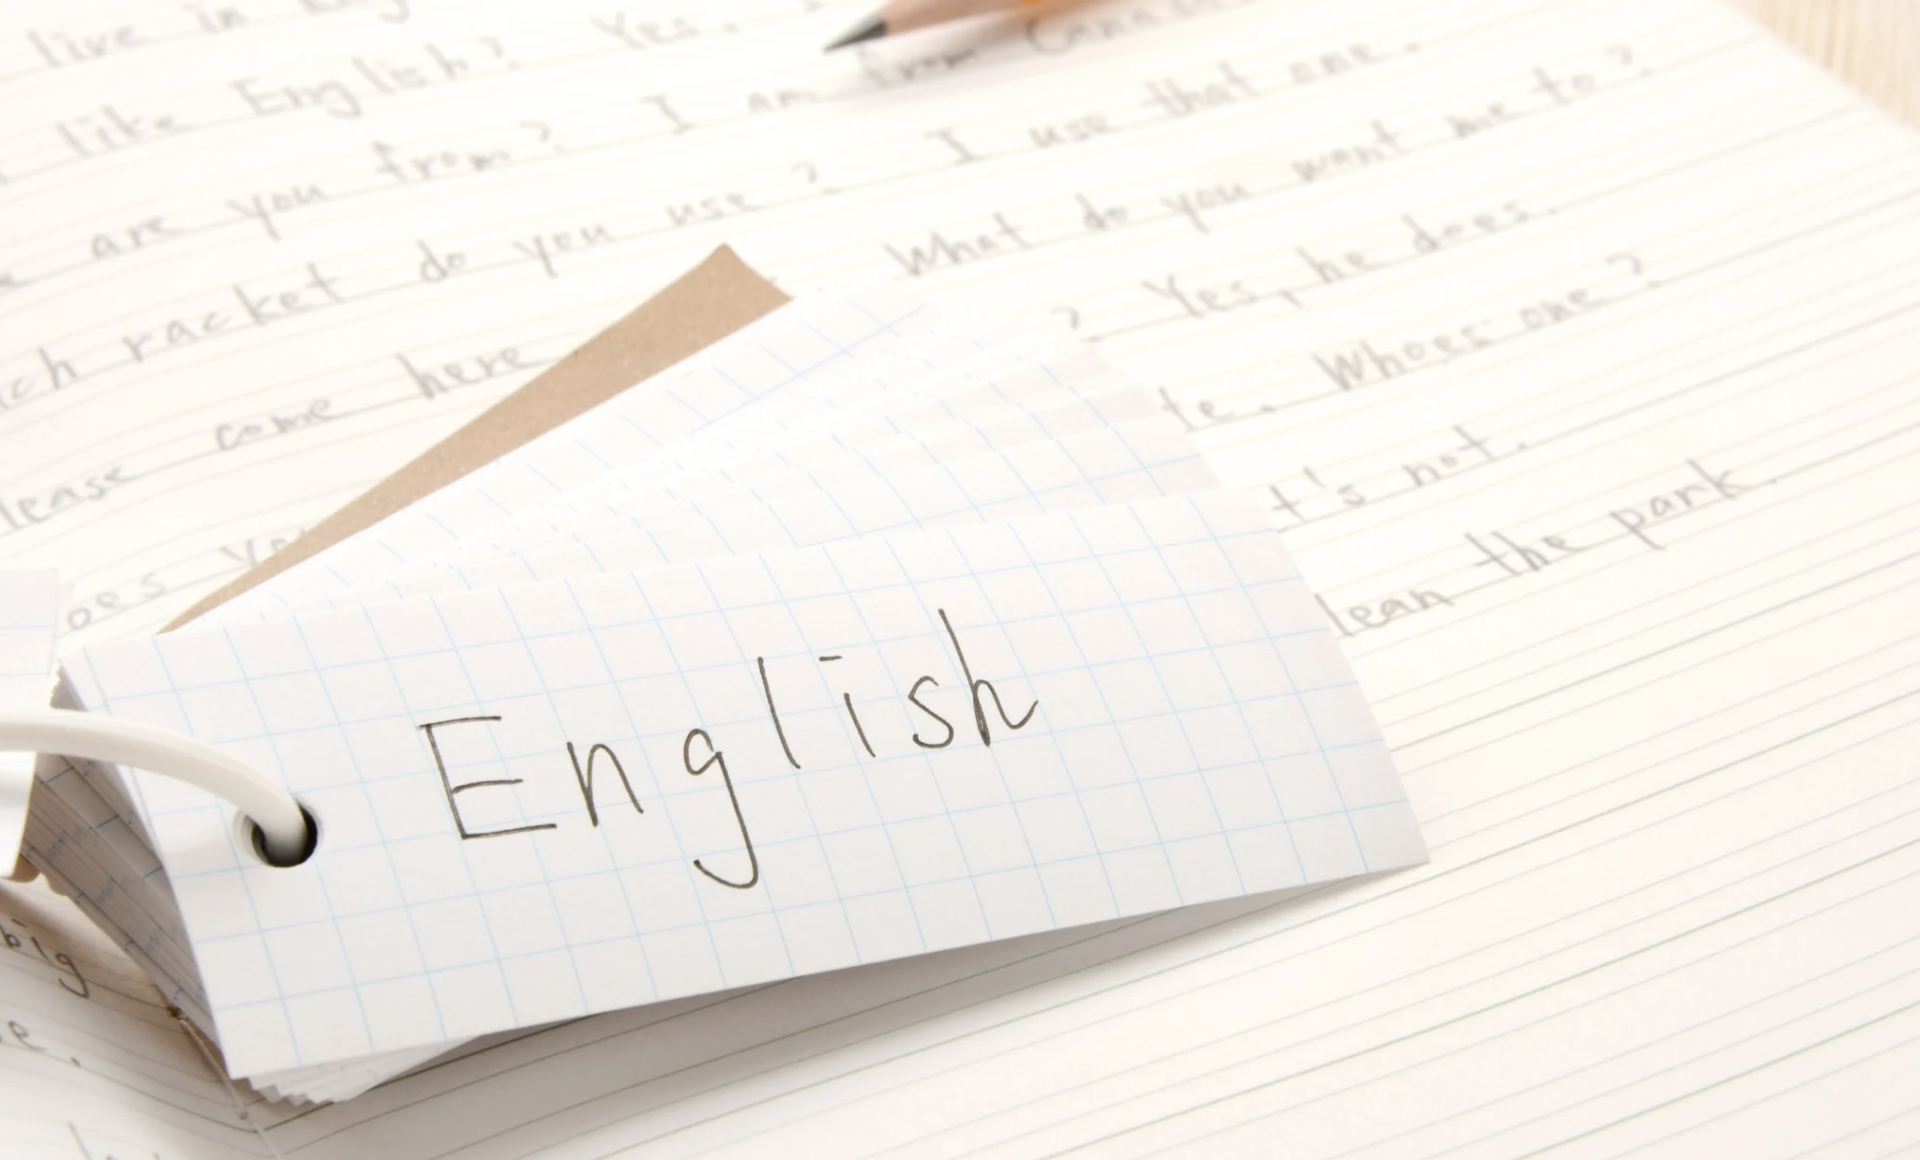 live in
like English? Yes.
are you from? I am from Canada
racket do you use? I use that one.
come here What do you want me to?
? Yes, he does.
Whoes one?
t's not.
the park.
English
big